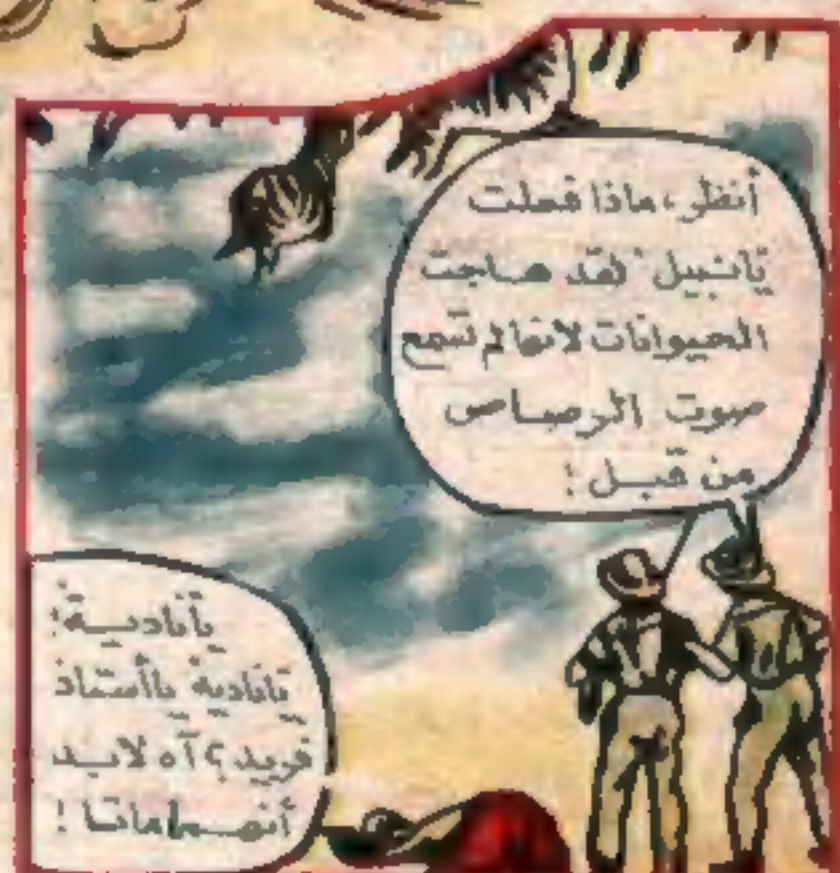 أنظر، ماذا فعلت
يانبيل لقد هاجت
الحيوانات لانها لم تسمع
صوت الرصاص
من قبل !
يانادية !
يانادية ياأستاذ
فريد ؟ آه لابد
أنهما ماتا !